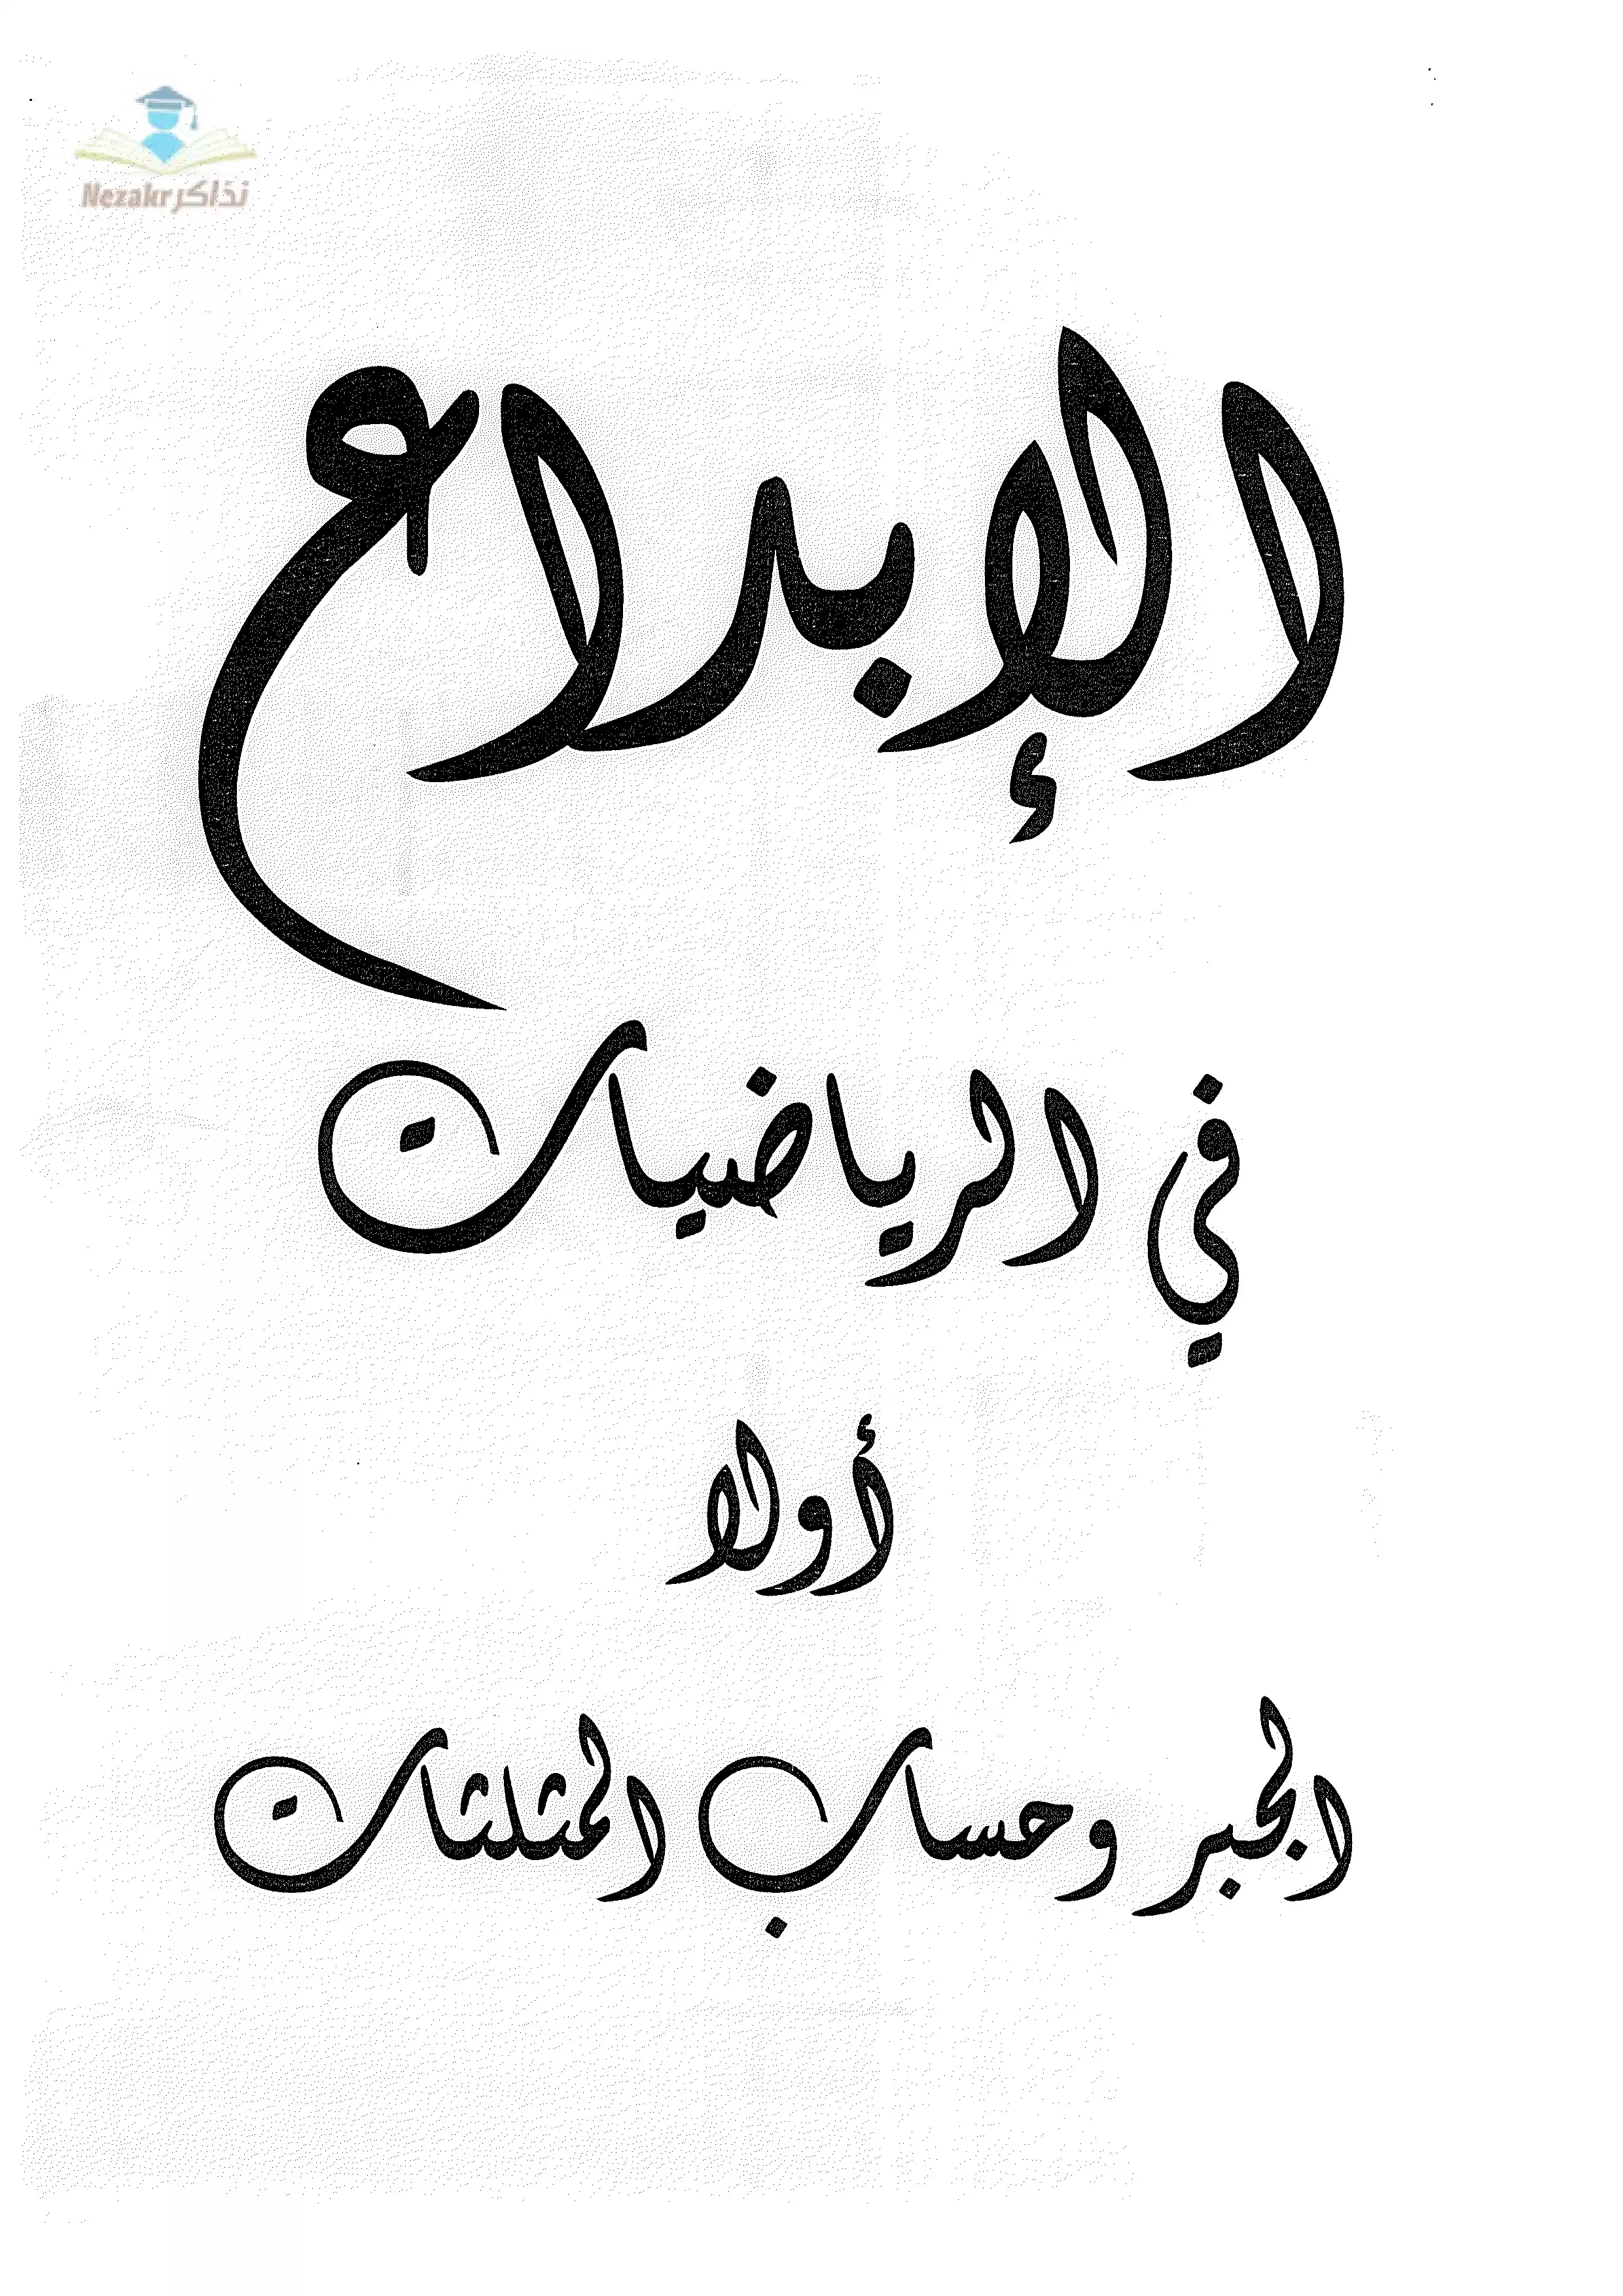 Nezakr نذاكر
الإبداع
في الرياضيات
أولا
الجبر وحساب المثلثات